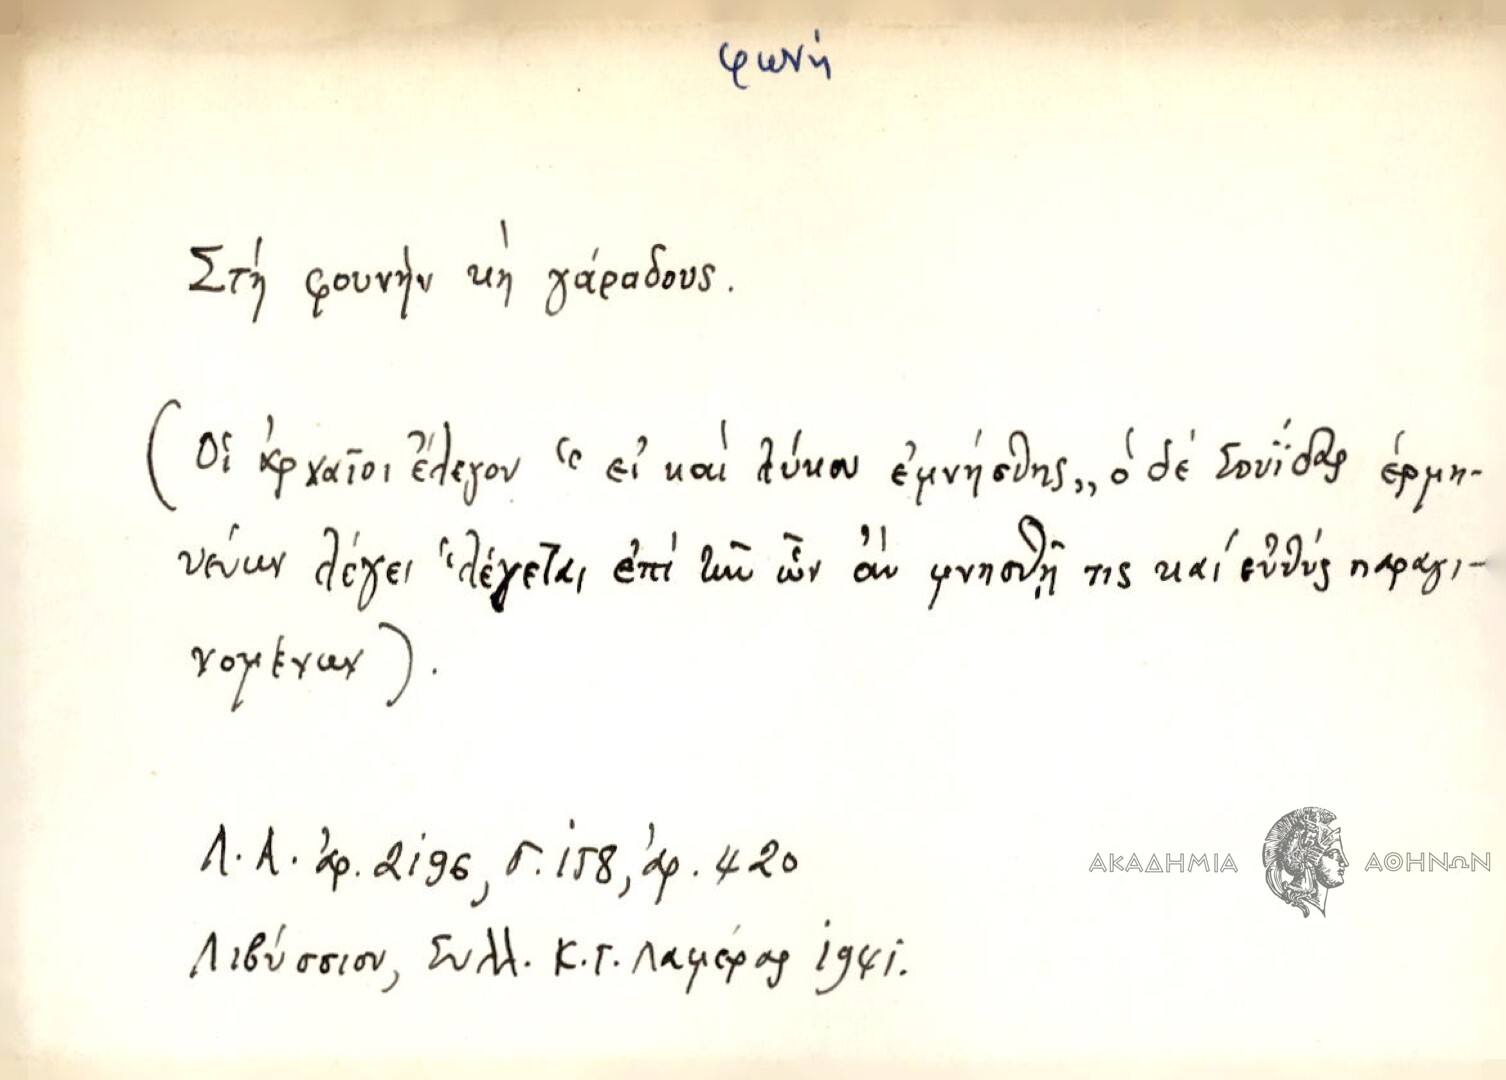 φωνή
Στή φουνήν κή γάραδους.
(Οἱ ἀρχαῖοι ἔλεγον “ εἰ καί λύκου ἐμνήσθης„, ὁ δέ Σουΐδας ἑρμη-
νεύων λέγει “λέγεται ἐπί τῶν ὧν ἄν μνησθῇ τις καί εὐθύς παραγι-
νομένων).
Λ.Α. ἀρ. 2196, σ. 158, ἀρ. 420
Λιβύσσιον, Συλλ. Κ.Γ. Λαμέρας 1941.
ΑΚΑΔΗΜΙΑ ΑΘΗΝΩΝ